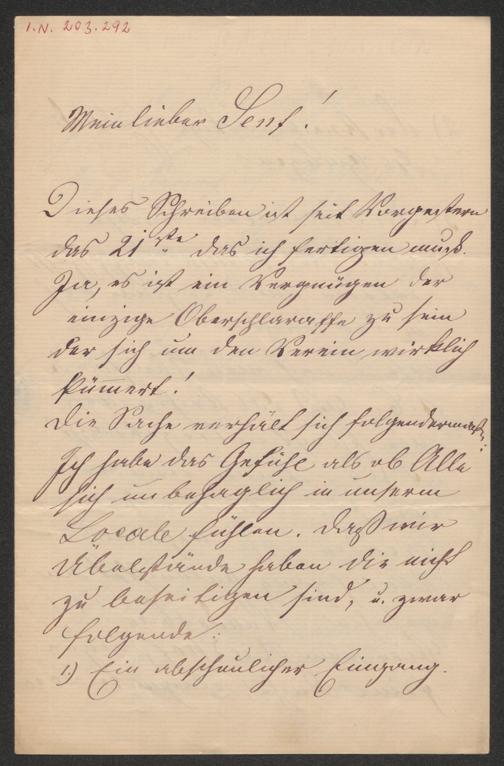 I.N. 203.292
Mein lieber Senf!
Dieses Schreiben ist seit Vorgestern
das 21ste das ich fertigen muß.
Ja, es ist ein Vergnügen der
einzige Oberschlaraffe zu sein
der sich um den Verein wirklich
kümert!
Die Sache verhält sich folgendermaß:
Ich habe das Gefühl als ob Alle
sich unbehaglich in unserm
Locale fühlen. Daß wir
Übelstände haben die nicht
zu beseitigen sind, u. zwar
folgende:
1.) Ein abscheulicher Eingang.